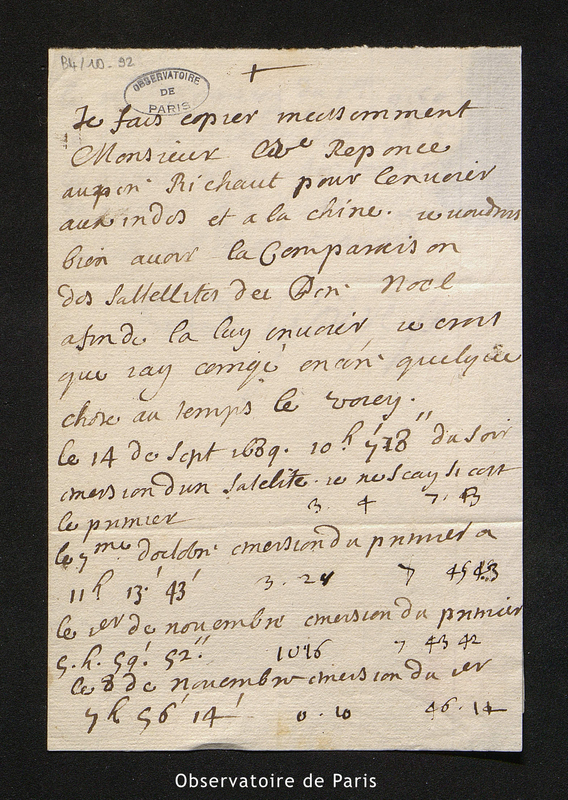 B4/10-92
OBSERVATOIRE
DE
PARIS
+
Je fais copier
Monsieur Reponce
au Richaut pour lenvoier
aux indes et a la chine. ie voudrois
bien avoir la Comparaison
des sattellites du Noel
afin de la luy envoier ie crois
que iay corrigé quelque
chose au temps le voicy.
le 14 de Sept 1689. 10 h du soir
emersion dun satelite. ie ne scay si cest
le premier 3. 4 7. 43
le 7me doctobre emersion du premier a
11 h 13' 43' 3. 24 7
le 1er de novembre emersion du premier
5. h. 59' 52'' 7 43 42
le 8 de novembre emersion du 1er
7 h 56' 14' 0. 10 46. 14
Observatoire de Paris